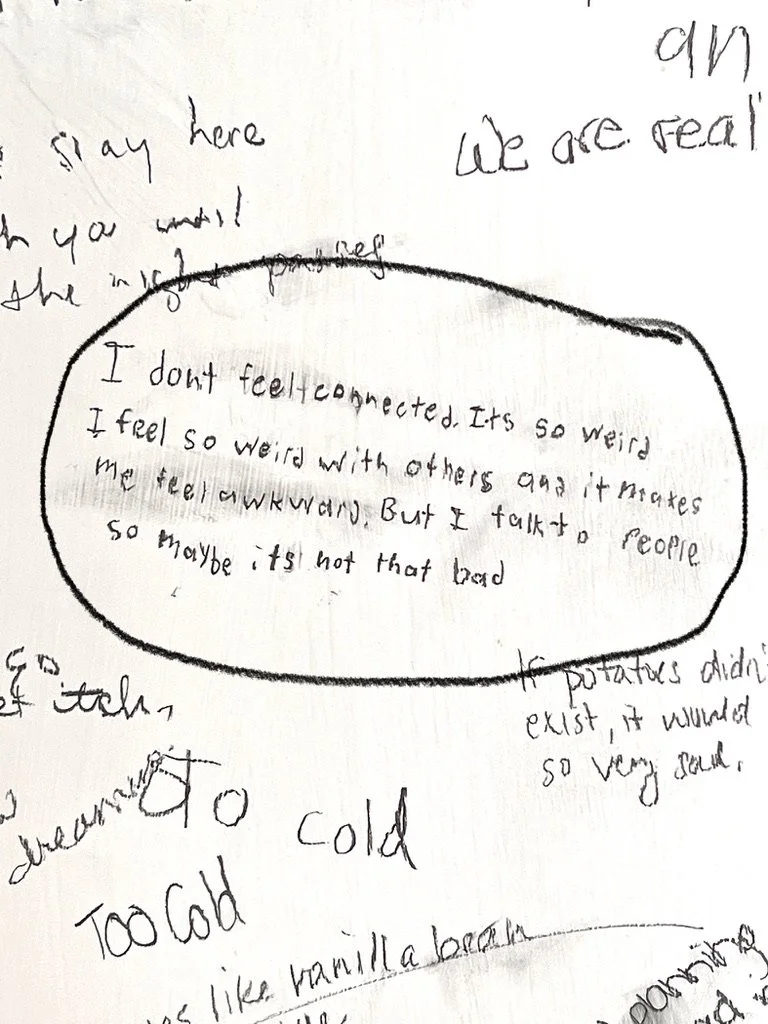 an
We are real
stay here
you until
the night passes
I dont feel connected. Its so weird
I feel so weird with others and it makes
me feel awkward. But I talk to people
so maybe its not that bad
go
itch,
If potatoes didn'
exist, it would
so very sad.
dreaming
To cold
Too Cold
like vanilla bean
planning